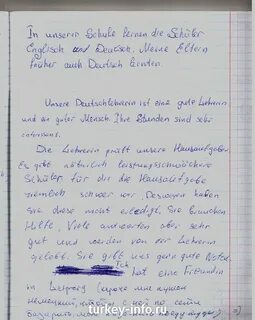 In unserer Schule lernen die Schüler
Englisch und Deutsch. Meine Eltern
früher auch Deutsch lernten.
Unsere Deutschlehrerin ist eine gute Lehrerin
und ein guter Mensch. Ihre Stunden sind sehr
interessant.
Die Lehrerin prüft unsere Hausaufgabe.
Es gibt natürlich leistungsschwächere
Schüler für die die Hausaufgabe
ziemlich schwer war. Deswegen haben
sie diese nicht erledigt. Sie brauchen
Hilfe. Viele antworten aber sehr
gut und werden von der Lehrerin
gelobt. Sie gibt uns gern gute Noten.
Ich hat eine Freundin
in Leipzig (короче мне нужен
немецкий, чтобы с ней по сети
turkey-info.ru